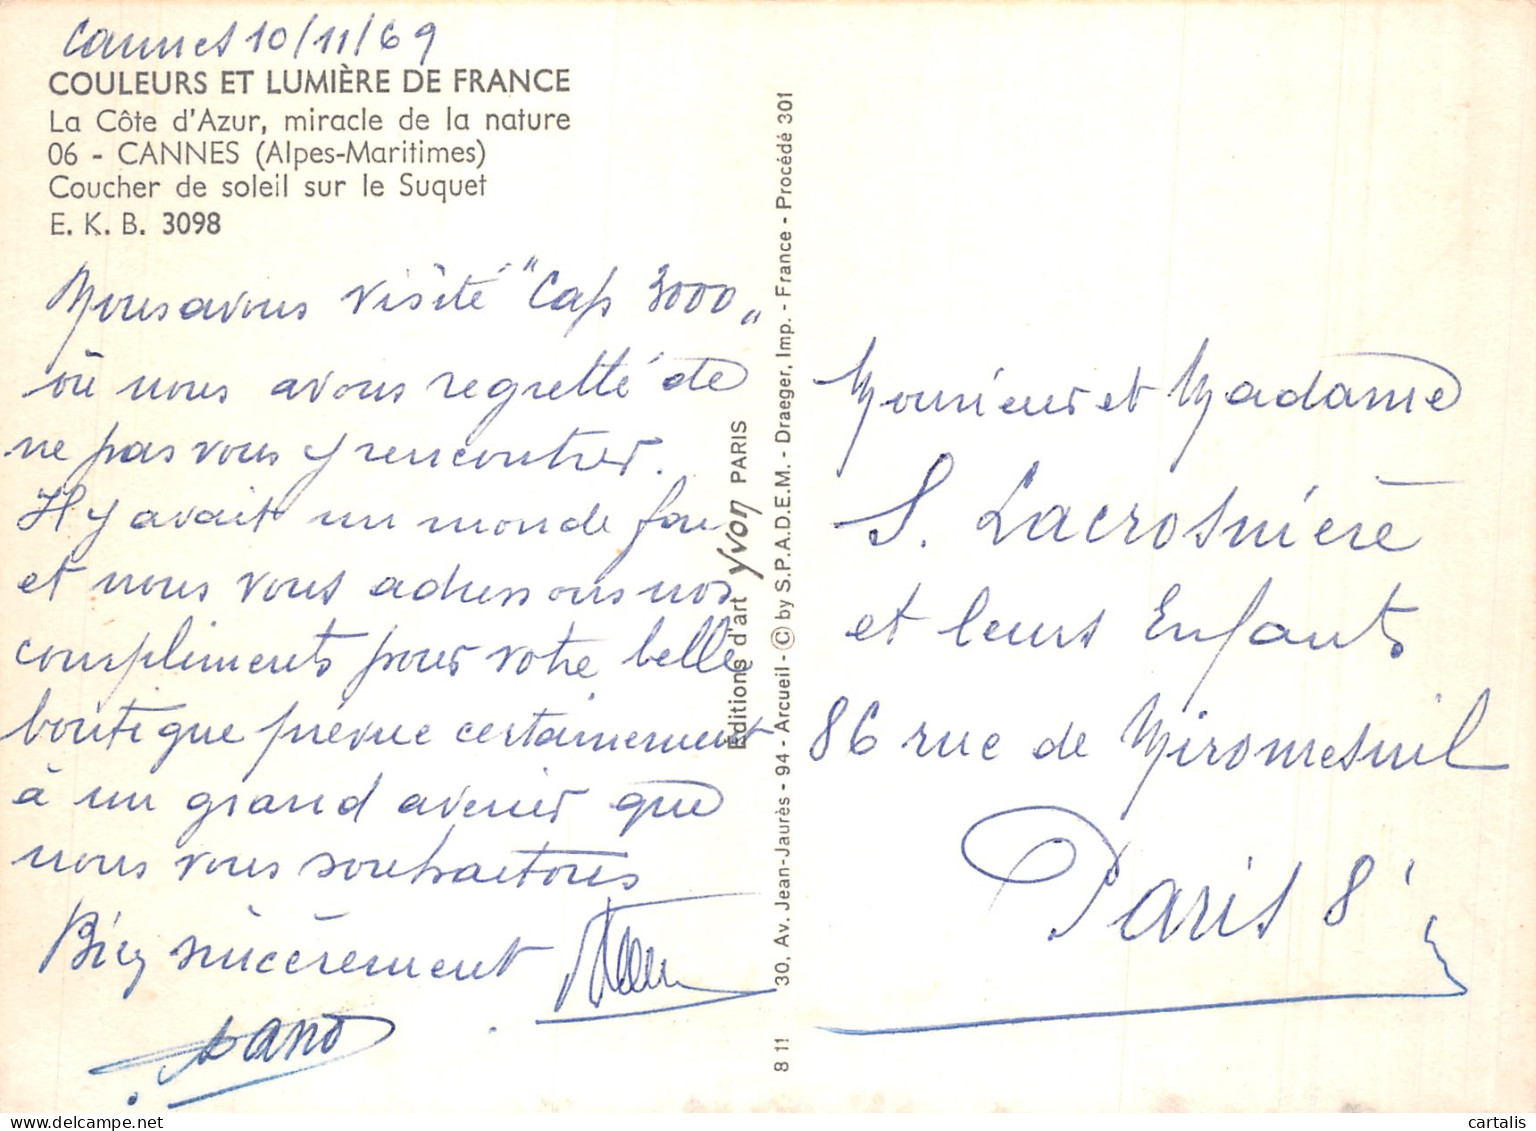 Cannes 10/11/69
COULEURS ET LUMIÈRE DE FRANCE
La Côte d'Azur, miracle de la nature
06 - CANNES (Alpes-Maritimes)
Coucher de soleil sur le Suquet
E. K. B. 3098
Nous avons visité "Cap 3000"
où nous avons regretté de
ne pas vous y rencontrer.
Il y avait un monde fou
et nous vous adressons nos
compliments pour votre belle
boutique prévue certainement
à un grand avenir que
nous vous souhaitons
Bien sincèrement
Editions d'art yvon PARIS
8 11 30, Av. Jean-Jaurès - 94 - Arcueil - © by S.P.A.D.E.M. - Draeger, Imp. - France - Procédé 301
Monsieur et Madame
S. Lacrosnière
et leurs Enfants
86 rue de Miromesnil
Paris 8
cartalis